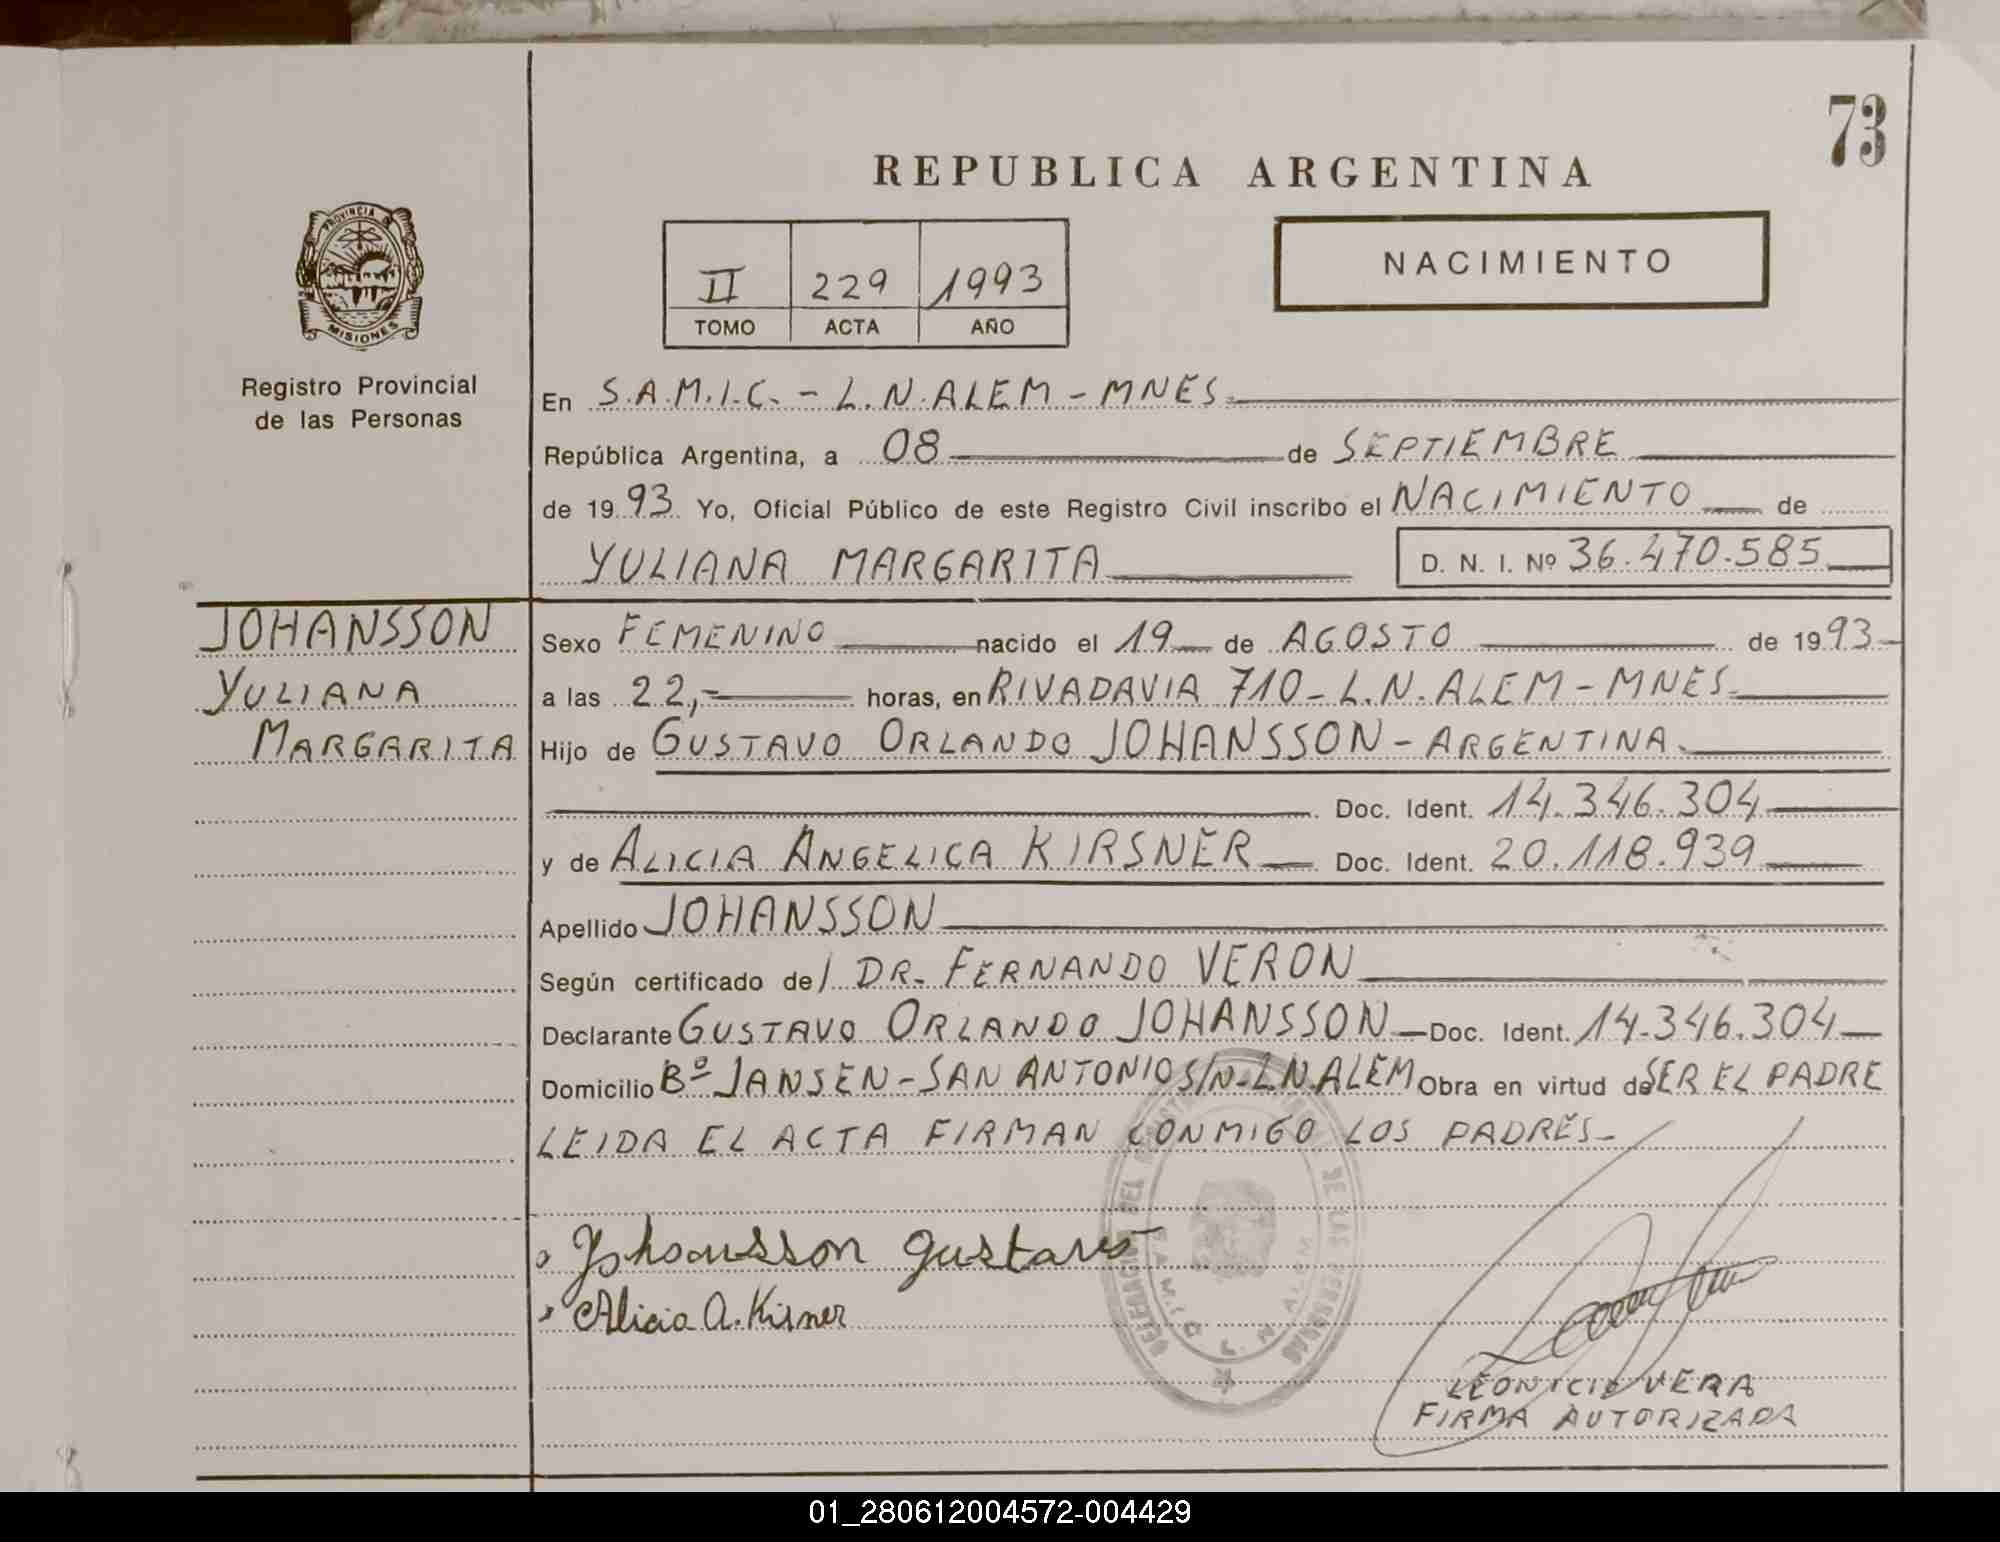 73
REPUBLICA ARGENTINA
PROVINCIA DE
MISIONES
Registro Provincial
de las Personas
II 229 1993
TOMO ACTA AÑO
NACIMIENTO
En S.A.M.I.C. - L.N.ALEM - MNES.
República Argentina, a 08 de SEPTIEMBRE
de 19 93 Yo, Oficial Público de este Registro Civil inscribo el NACIMIENTO de
YULIANA MARGARITA D. N. I. Nº 36.470.585
JOHANSSON
YULIANA
MARGARITA
Sexo FEMENINO nacido el 19 de AGOSTO de 19 93
a las 22,- horas, en RIVADAVIA 710 - L.N.ALEM - MNES.
Hijo de GUSTAVO ORLANDO JOHANSSON - ARGENTINA.
Doc. Ident. 14.346.304
y de ALICIA ANGELICA KIRSNER Doc. Ident. 20.118.939
Apellido JOHANSSON
Según certificado de/ DR. FERNANDO VERON
Declarante GUSTAVO ORLANDO JOHANSSON Doc. Ident. 14.346.304
Domicilio Bº JANSEN - SAN ANTONIO S/N - L.N.ALEM Obra en virtud de SER EL PADRE
LEIDA EL ACTA FIRMAN CONMIGO LOS PADRES -
Johansson Gustavo
Alicia A. Kirsner
DEL DE LAS
L. N. ALEM
LEONICIO VERA
FIRMA AUTORIZADA
01_280612004572-004429